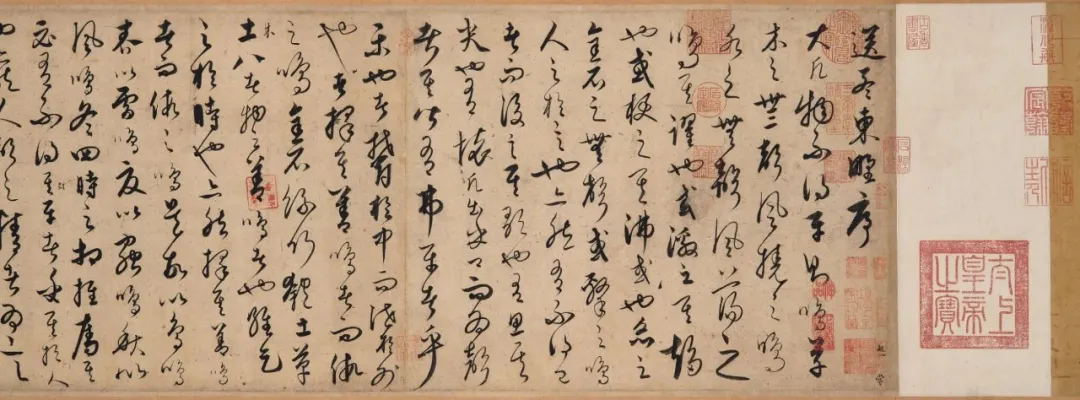 送孟東野序
大凡物不得平則鳴草
木之無聲風撓之鳴
水之無聲風蕩之
鳴其躍也或激之其趨
也或梗之其沸或也炙之
金石之無聲或擊之鳴
人之於言也亦然有不得已
者而後言其歌也有思其
哭也有懷凡出乎口而為聲
者其皆有弗平者乎
樂也者鬱於中而泄於外
也者擇其善鳴者而假
之鳴金石絲竹匏土革
木八者物之善鳴者也維天
之於時也亦然擇其善鳴
者而假之鳴是故以鳥鳴
春以雷鳴夏以蟲鳴秋以
風鳴冬四時之相推奪其
必有不得其平者乎其於人
也亦然人聲之精者為言
太上皇帝之寶